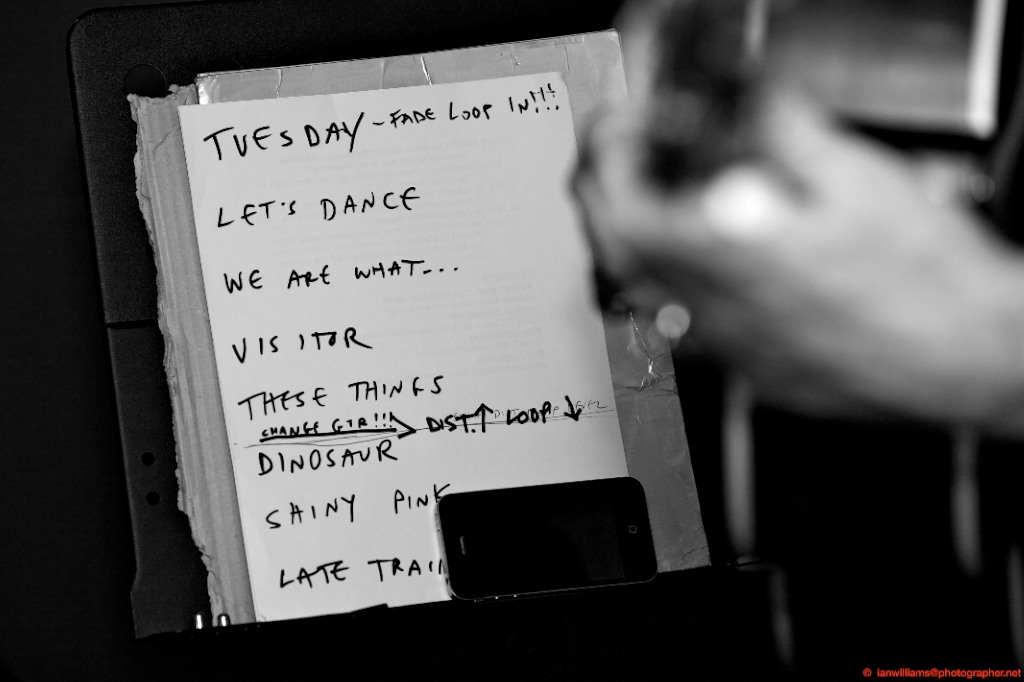 TUESDAY - FADE LOOP IN!!!
LET'S DANCE
WE ARE WHAT...
VISITOR
THESE THINGS
CHANGE GTR!!! → DIST. ↑ LOOP ↓
DINOSAUR
SHINY PINK
LATE TRAIN
© ianwilliams@photographer.net